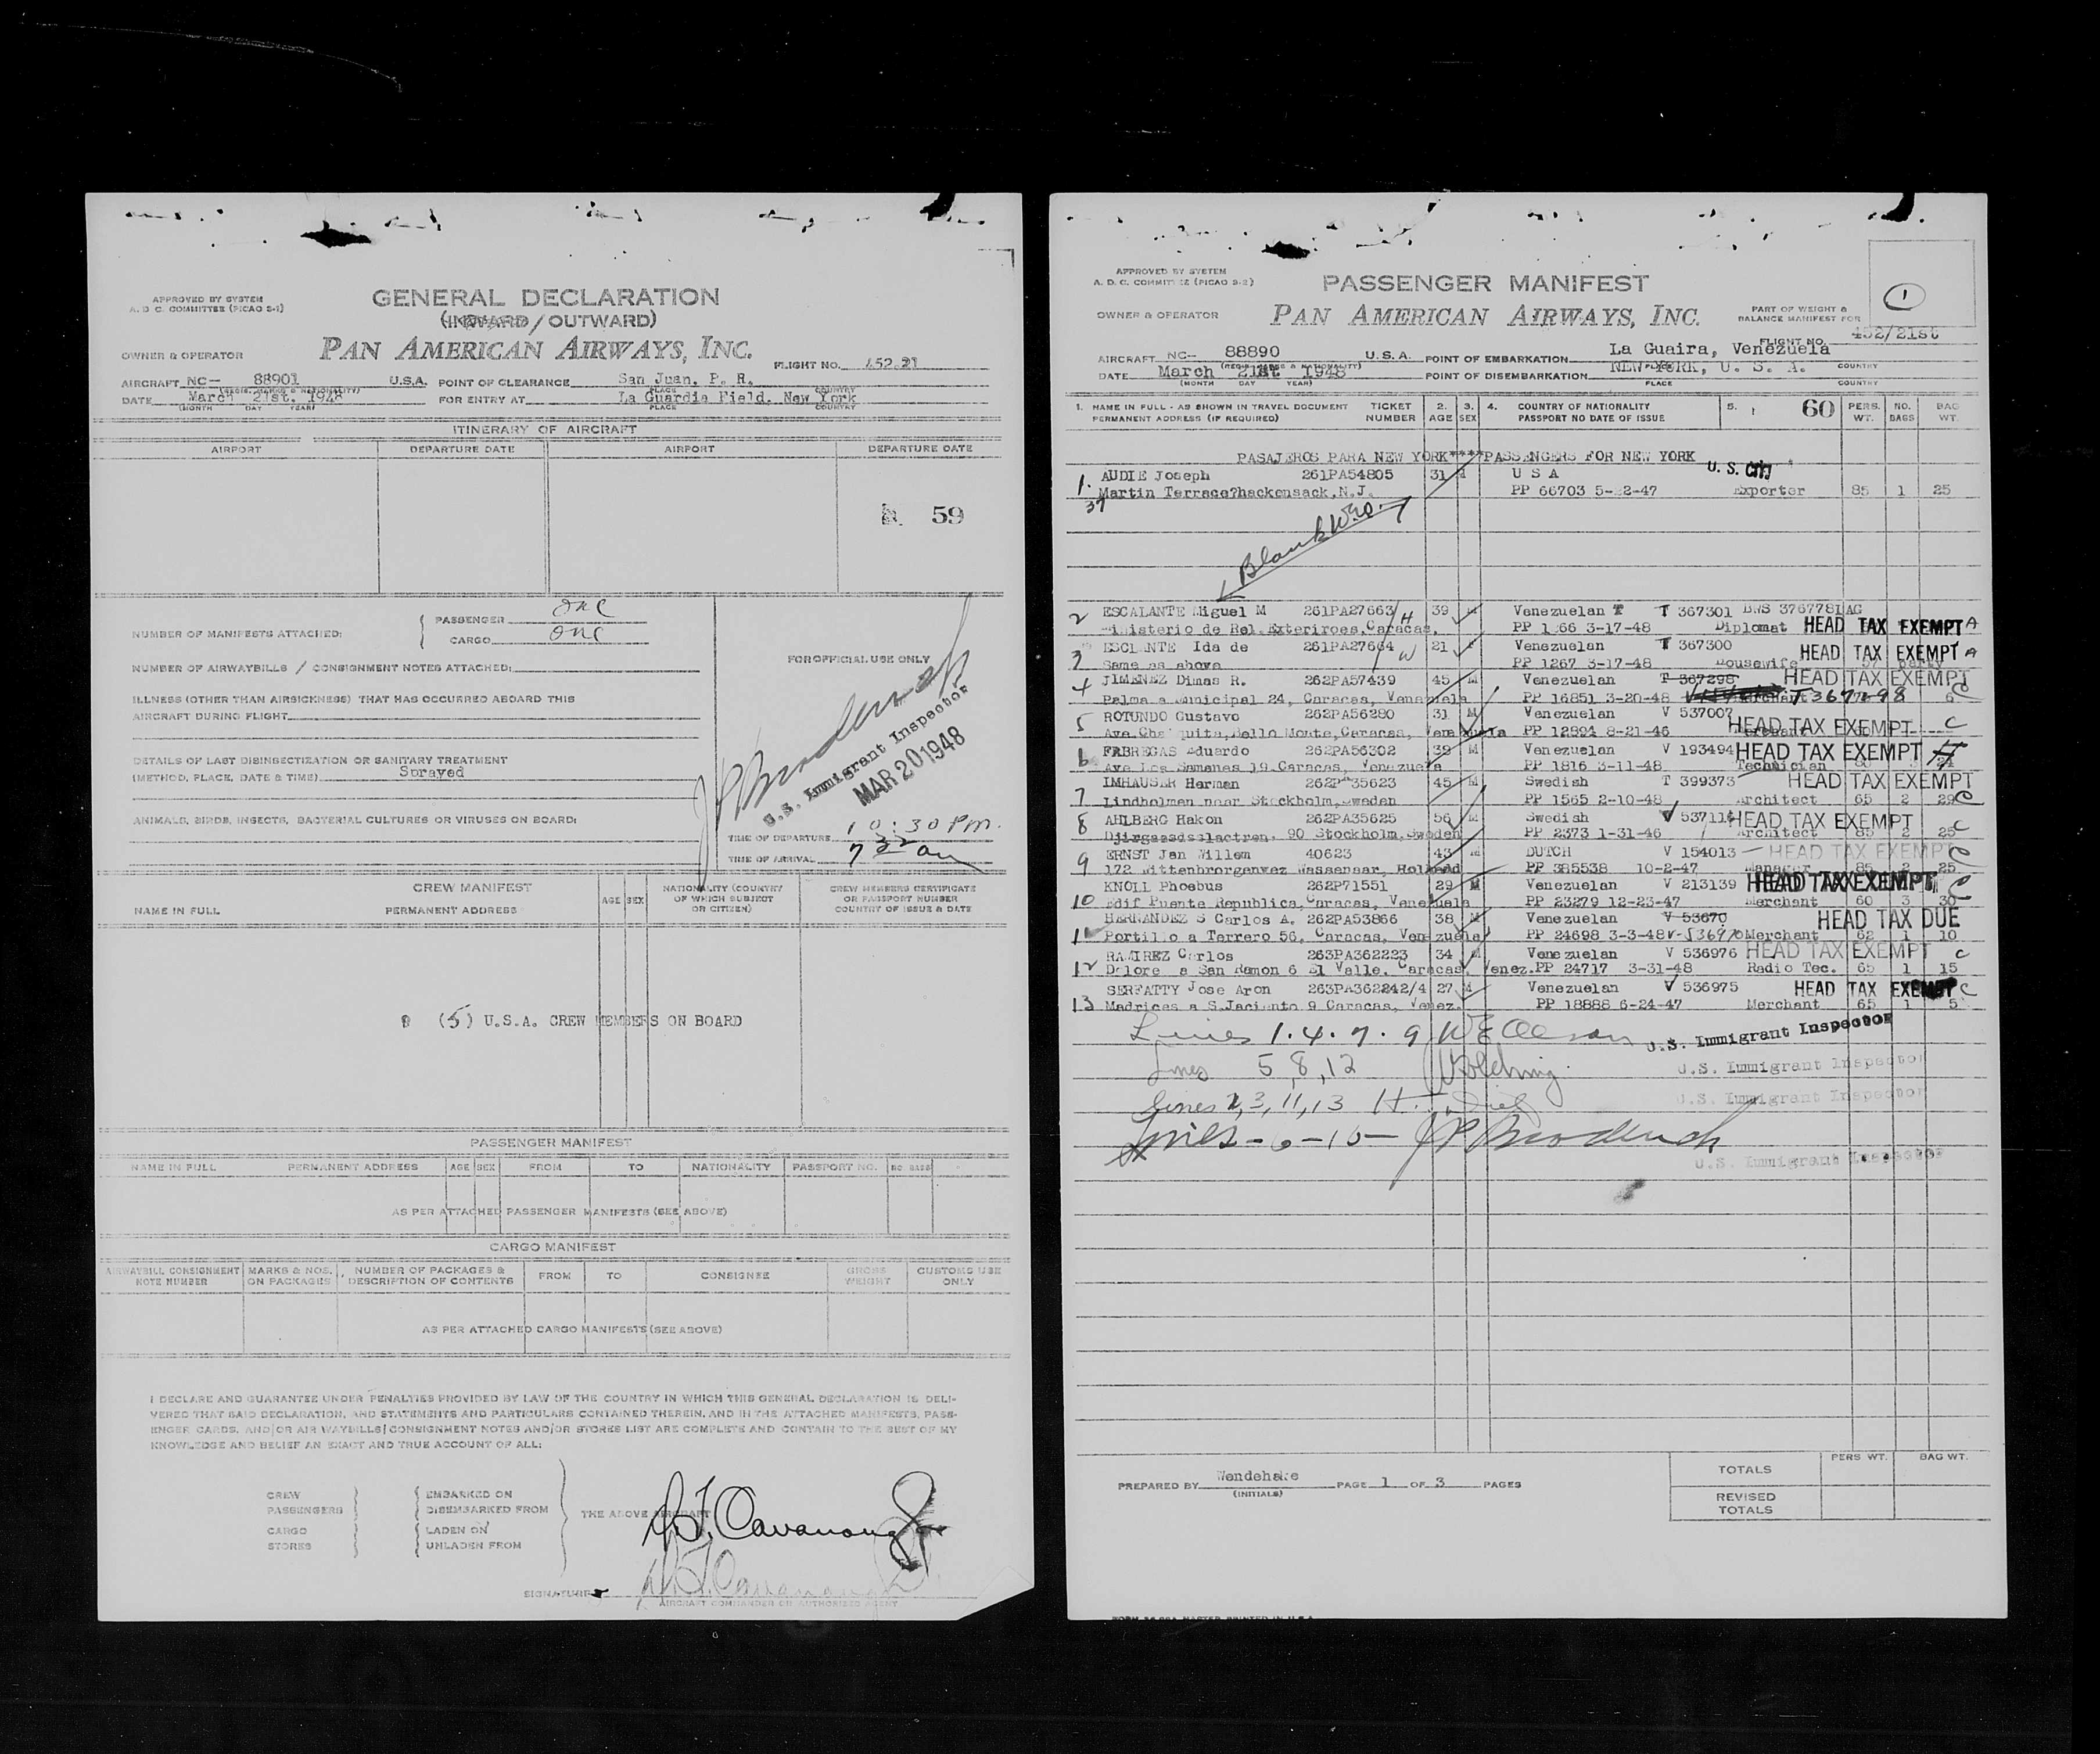 APPROVED BY SYSTEM
A. D. C. COMMITTEE (PICAO S-1)
GENERAL DECLARATION
(INWARD / OUTWARD)
OWNER & OPERATOR
PAN AMERICAN AIRWAYS, INC.
FLIGHT NO. 452.21
AIRCRAFT NC- 88901 U.S.A. POINT OF CLEARANCE San Juan, P. R.
(REGIS. MARKS & NATIONALITY) PLACE COUNTRY
DATE March 21st. 1948 FOR ENTRY AT La Guardia Field, New York
(MONTH DAY YEAR) PLACE COUNTRY
ITINERARY OF AIRCRAFT
AIRPORT DEPARTURE DATE AIRPORT DEPARTURE DATE
59
NUMBER OF MANIFESTS ATTACHED:
PASSENGER one
CARGO one
NUMBER OF AIRWAYBILLS / CONSIGNMENT NOTES ATTACHED:
ILLNESS (OTHER THAN AIRSICKNESS) THAT HAS OCCURRED ABOARD THIS
AIRCRAFT DURING FLIGHT
DETAILS OF LAST DISINSECTIZATION OR SANITARY TREATMENT
(METHOD, PLACE, DATE & TIME) Sprayed
ANIMALS, BIRDS, INSECTS, BACTERIAL CULTURES OR VIRUSES ON BOARD:
FOR OFFICIAL USE ONLY
JP Broderick
U.S. Immigrant Inspector
MAR 20 1948
TIME OF DEPARTURE 10:30 PM.
TIME OF ARRIVAL 7 22 am
CREW MANIFEST
NAME IN FULL PERMANENT ADDRESS AGE SEX
NATIONALITY (COUNTRY
OF WHICH SUBJECT
OR CITIZEN)
CREW MEMBERS CERTIFICATE
OR PASSPORT NUMBER
COUNTRY OF ISSUE & DATE
(5) U.S.A. CREW MEMBERS ON BOARD
PASSENGER MANIFEST
NAME IN FULL PERMANENT ADDRESS AGE SEX FROM TO NATIONALITY PASSPORT NO. NO. BAGS
AS PER ATTACHED PASSENGER MANIFESTS (SEE ABOVE)
CARGO MANIFEST
AIRWAYBILL CONSIGNMENT
NOTE NUMBER
MARKS & NOS.
ON PACKAGES
NUMBER OF PACKAGES &
DESCRIPTION OF CONTENTS
FROM TO CONSIGNEE
GROSS
WEIGHT
CUSTOMS USE
ONLY
AS PER ATTACHED CARGO MANIFESTS (SEE ABOVE)
I DECLARE AND GUARANTEE UNDER PENALTIES PROVIDED BY LAW OF THE COUNTRY IN WHICH THIS GENERAL DECLARATION IS DELI-
VERED THAT SAID DECLARATION, AND STATEMENTS AND PARTICULARS CONTAINED THEREIN, AND IN THE ATTACHED MANIFESTS, PASS-
ENGER CARDS, AND/OR AIR WAYBILLS/CONSIGNMENT NOTES AND/OR STORES LIST ARE COMPLETE AND CONTAIN TO THE BEST OF MY
KNOWLEDGE AND BELIEF AN EXACT AND TRUE ACCOUNT OF ALL:
CREW EMBARKED ON
PASSENGERS DISEMBARKED FROM
CARGO LADEN ON
STORES UNLADEN FROM
THE ABOVE AIRCRAFT
Cavanaugh
SIGNATURE
AIRCRAFT COMMANDER OR AUTHORISED AGENT
APPROVED BY SYSTEM
A. D. C. COMMITTEE (PICAO S-2)
PASSENGER MANIFEST
1
OWNER & OPERATOR
PAN AMERICAN AIRWAYS, INC.
PART OF WEIGHT &
BALANCE MANIFEST FOR
FLIGHT NO. 452/21st
AIRCRAFT NC- 88890 U.S.A. POINT OF EMBARKATION La Guaira, Venezuela
(REGIS. MARKS & NATIONALITY) PLACE COUNTRY
DATE March 21st 1948 POINT OF DISEMBARKATION NEW YORK, U. S. A.
(MONTH DAY YEAR) PLACE COUNTRY
1. NAME IN FULL - AS SHOWN IN TRAVEL DOCUMENT TICKET 2. 3. 4. COUNTRY OF NATIONALITY 5. 60 PERS. NO. BAG
PERMANENT ADDRESS (IF REQUIRED) NUMBER AGE SEX PASSPORT NO DATE OF ISSUE WT. BAGS WT.
PASAJEROS PARA NEW YORK****PASSENGERS FOR NEW YORK
1. AUDIE Joseph 261PA54805 31 U S A U. S. Cit
37 Martin Terrace?hackensack,N.J. PP 66703 Exporter 85 1 25
Blank
2 ESCALANTE Miguel M 261PA27663 39 M Venezuelan T 367301 BWS 3767781 AG
Ministerio de Rel.Exteriroes,Caracas, Diplomat HEAD TAX EXEMPT A
3 ESCLANTE Ida de 261PA27664 21 F Venezuelan T 367300
Same as above PP 1267 3-17-48 Housewife HEAD TAX EXEMPT A
4 JIMENEZ Dimas R. 262PA57439 45 M Venezuelan T 367298 HEAD TAX EXEMPT
Palma a Municipal 24, Caracas, Venezuela PP 16851 3-20-48 T 367298 6 C
5 ROTUNDO Gustavo 262PA56280 31 M Venezuelan V 537007
Ave Chaquita,Bello Monte,Caracas, Venezuela PP 12894 8-21-46 HEAD TAX EXEMPT C
6 FABREGAS Eduardo 262PA56302 38 M Venezuelan V 193494 HEAD TAX EXEMPT
Ave Los Samanes 19 Caracas, Venezuela PP 1816 3-11-48 Technician
7 IMHAUSER Herman 262PA35623 45 M Swedish T 399373 HEAD TAX EXEMPT
Lindholmen near Stockholm,Sweden PP 1565 2-10-48 Architect 65 2 29 C
8 AHLBERG Hakon 262PA35625 56 M Swedish V 537114 HEAD TAX EXEMPT
90 Stockholm,Sweden PP 2373 1-31-46 Architect 85 2 25 C
9 ERNST Jan Willem 40623 43 M DUTCH V 154013 HEAD TAX EXEMPT
172 Wittenbrorgenwez Wassenaar, Holland PP 385538 10-2-47 Manager 85 2 25 C
10 KNOLL Phoebus 262P71551 29 M Venezuelan V 213139 HEAD TAX EXEMPT
Edif Puente Republica,Caracas, Venezuela PP 23279 12-23-47 Merchant 60 3 30 C
11 HERNANDEZ S Carlos A. 262PA53866 38 M Venezuelan V 53670 HEAD TAX DUE
Portillo a Terrero 56, Caracas, Venezuela PP 24698 3-3-48 V-53697 Merchant 62 1 10
12 RAMIREZ Carlos 263PA362223 34 M Venezuelan V 536976 HEAD TAX EXEMPT C
Dolore a San Ramon 6 El Valle, Caracas, Venez. PP 24717 3-31-48 Radio Tec. 65 1 15
13 SERFATTY Jose Aron 263PA362242/4 27 M Venezuelan V 536975 HEAD TAX EXEMPT C
Madrices a S.Jacinto 9 Caracas, Venez. PP 18888 6-24-47 Merchant 65 1 5
Lines 1. 4. 7. 9 U.S. Immigrant Inspector
Lines 5, 8, 12 U.S. Immigrant Inspector
Lines 2, 3, 11, 13 U.S. Immigrant Inspector
Lines - 6 - 10 - JP Broderick
U.S. Immigrant Inspector
PREPARED BY Wendehake PAGE 1 OF 3 PAGES
(INITIALS)
PERS WT. BAG WT.
TOTALS
REVISED
TOTALS